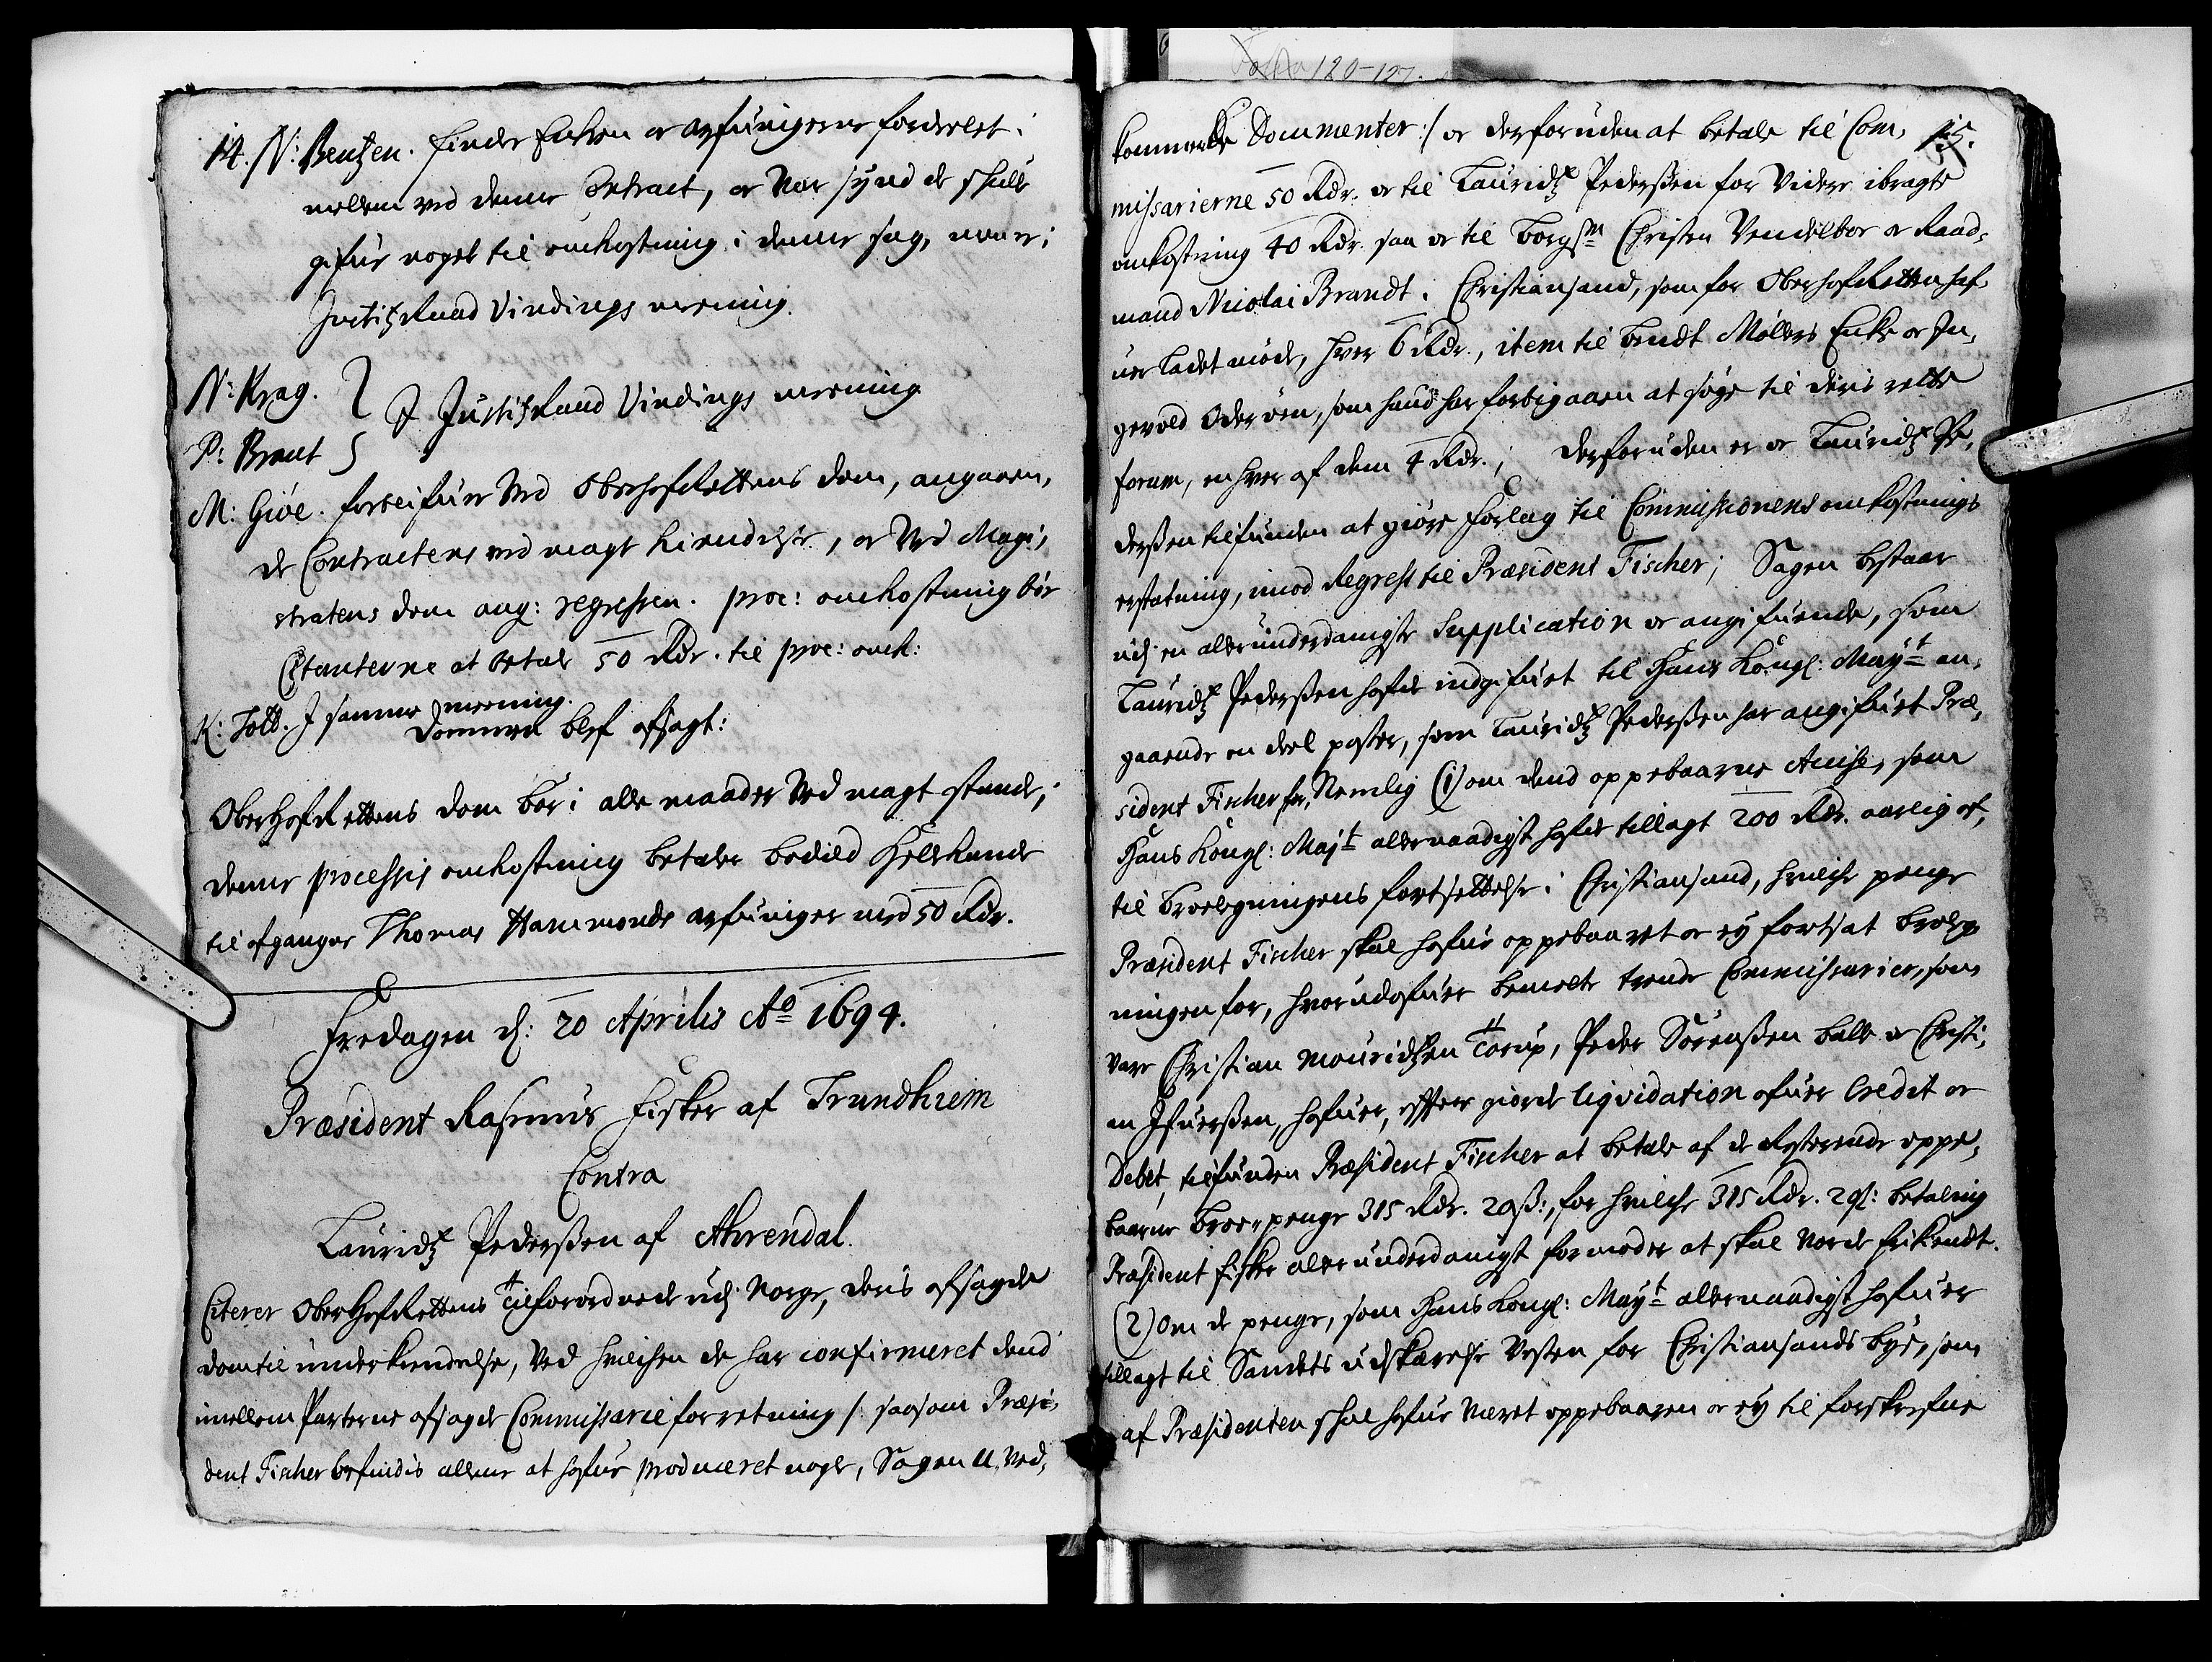 Folio 120-127.
14. N: Bentzen. finder Enken er arfuingerne fordeelet i
mellem ved denne Contract, er Var synd de skulle
gifue noget til omkostning i denne sag, men er i
Justitz Raad Vindings meening.
N: Krag.
P: Brant
J Justitz Raad Vindings meening
M: Giöe. forbeifuer Ved OberhofRettens dom, angaaen,
de Contractens ved magt kiendelse, or Ved Magi,
stratens dom ang: regressen. proc: omkostning bör
Citanterne at betale 50 Rdr. til proc: omk:
K: Tott. J samme meening.
Dommen blef afsagt:
OberhofRettens dom bör i alle maader Ved magt stande,
denne processis omkostning betaler Bodild Hellekande
til afgangne Thomas Hammonds arfuinger med 50 Rdr.
Fredagen d: 20 Aprilis Ao 1694.
Præsident Rasmus Fisker af Trundhiem
Contra
Lauridtz Pederßen af Ahrendal.
Citerer OberhofRettens Tilforordnede udj Norge, deris afsagde
dom til underkiendelse, Ved huilchen de har confirmeret dend
imellem Parterne afsagde Commissarie forretning /: saasom Præsi,
dent Fischer befindis allene at hafue produceret nogle, Sagen U,Ved,
15.
kommende Documenter :/ or derforuden at betale til Com,
missarierne 50 Rdr. or til Lauridtz Pederßen for Videre ibragte
omkostning 40 Rdr. saa or til Borgm Christen Vendelboe or Raad,
mand Nicolai Brandt i Christiansand, som for OberhofRetten haf,
uer ladet möde, hver 6 Rdr., item til Bendt Möllers Enke or In,
gevold Oderöen, som hand har forbigaaen at söge til deris rette
forum, en hver af dem 4 Rdr.; derforuden er or Lauridtz Pe,
derßen tilfunden at giöre forlag til Commissionens omkostnings
erstatning, imod Regress til Præsident Fischer; Sagen bestaar
udj en allerunderdanigste Supplication or angifuende, som
Lauridtz Pederßen hafde indgifuet til Hans Kongl: Mayt an,
gaaende en deel poster, som Lauridtz Pederßen har angifuet Præ,
sident Fischer for, Nemlig (1) om dend oppebaarne Accise, som
Hans Kongl: Mayt allernaadigst hafde tillagt 200 Rdr. aarlig af,
til Broelegningens fortsettelse i Christiansand, huilche penge
Præsident Fischer skal hafue oppebaaret or ey fortsat broleg
ningen for, hvorudofuer bemelte trende Commissarier, som
vare Christian Mouridtzen Torup, Peder Sörenßen Balle or Christi,
an Ifuerßen, hafuer, effter giorde liqvidation ofuer Credit or
Debet, tilfunden Præsident Fischer at betale af de Resterende oppe,
baarne Broe penge 315 Rdr. 29ß:, for huilche 315 Rdr. 29ß: betaling
Præsident Fisker allerunderdanigst formoder at skal Vorde frikiendt.
(2) Om de penge, som Hans Kongl: Mayt allernaadigst hafuer
tillagt til Sandets udskærelse Vesten for Christiansands bye, som
af Præsidenten skal hafue Været oppebaaren or ey til forskrefne